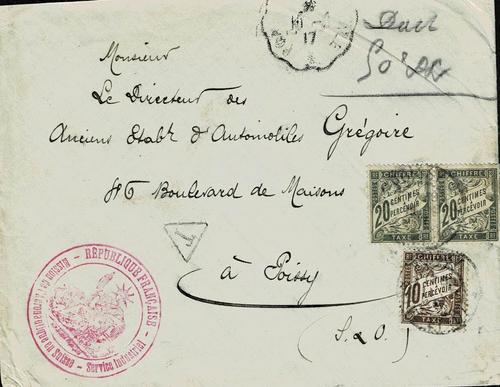 17
Duch
Monsieur
Le Directeur des
Anciens Etabts d'Automobiles Grégoire
Boulevard de Maisons
à Poissy
(S. & O.)
T
CHIFFRE
20 CENTIMES
À PERCEVOIR
TAXE
CHIFFRE
20 CENTIMES
À PERCEVOIR
TAXE
CHIFFRE
10 CENTIMES
À PERCEVOIR
TAXE
RÉPUBLIQUE FRANÇAISE
en Suisse - Service Industriel